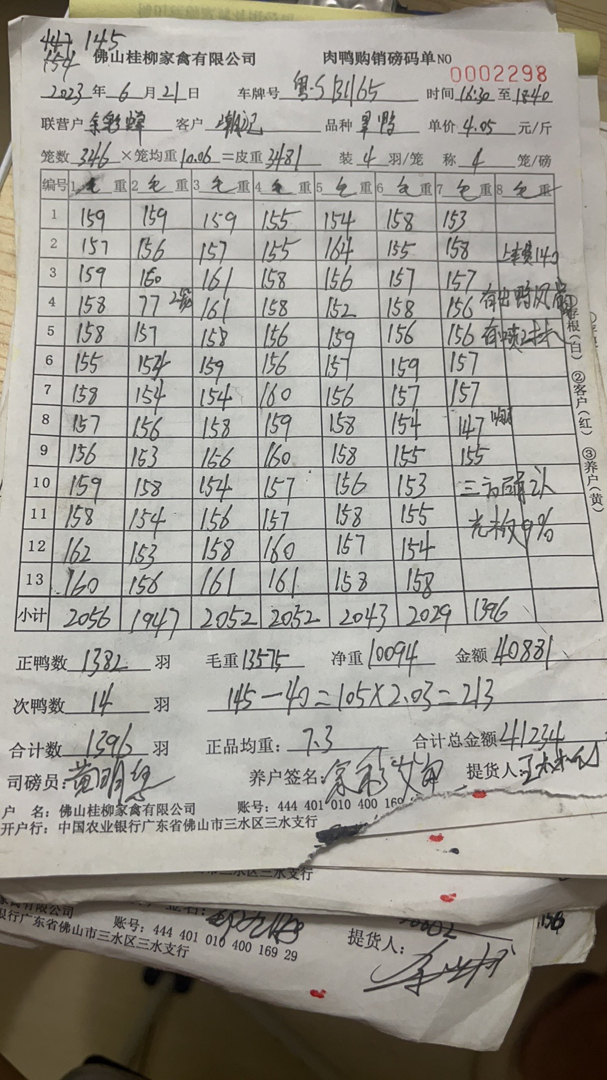 447 145
154 佛山桂柳家禽有限公司 肉鸭购销磅码单NO 0002298
2023年6月21日 车牌号 粤·S 时间16:30至18:40
联营户 客户 品种 单价4.05元/斤
笼数346×笼均重10.06=皮重3481 装4羽/笼 称4笼/磅
编号 1毛重 2毛重 3毛重 4毛重 5毛重 6毛重 7毛重 8重
1 159 159 159 155 154 158 153
2 157 156 157 155 164 155 158
3 159 160 161 158 156 157 157
4 158 77 2笼 161 158 152 158 156
5 158 157 158 156 159 156 156
6 155 154 159 156 157 159 157
7 158 154 154 160 156 157 157
8 157 156 158 159 158 154 147
9 156 153 156 160 158 155 155
10 159 158 154 157 156 153 三方确认
11 158 154 156 157 158 155 9%
12 162 153 158 160 157 154
13 160 156 161 161 158 158
小计 2056 1947 2052 2052 2043 2029 1396
①存根(白) ②客户(红) ③养户(黄)
正鸭数1382羽 毛重13575 净重10094 金额40881
次鸭数14羽 145-40=105×2.03=213
合计数1396羽 正品均重:7.3 合计总金额41234
司磅员: 养户签名: 提货人:
户 名:佛山桂柳家禽有限公司 账号:444 401 010 400 169
开户行:中国农业银行广东省佛山市三水区三水支行
三水支行
家禽有限公司
账号:444 401 010 400 169 29 提货人:
银行广东省佛山市三水区三水支行